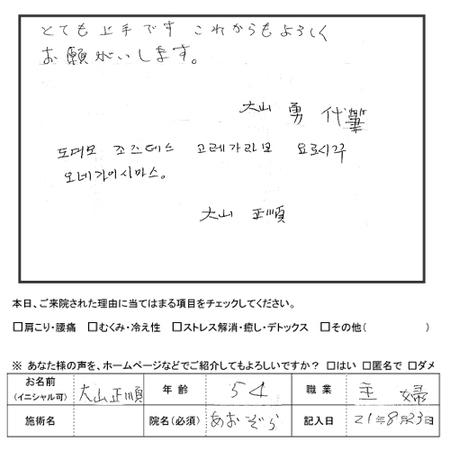 とても上手です これからもよろしく
お願がいします。
大山 勇 代筆
도머모 조즈데스 고레가라모 요로시구
오네가이시마스。
大山 正順
本日、ご来院された理由に当てはまる項目をチェックしてください。
□肩こり・腰痛 □むくみ・冷え性 □ストレス解消・癒し・デトックス □その他( )
※ あなた様の声を、ホームページなどでご紹介してもよろしいですか? □はい □匿名で □ダメ
お名前 (イニシャル可) 大山正順 年齢 54 職業 主婦
施術名 院名(必須) あおぞら 記入日 21年8月23日